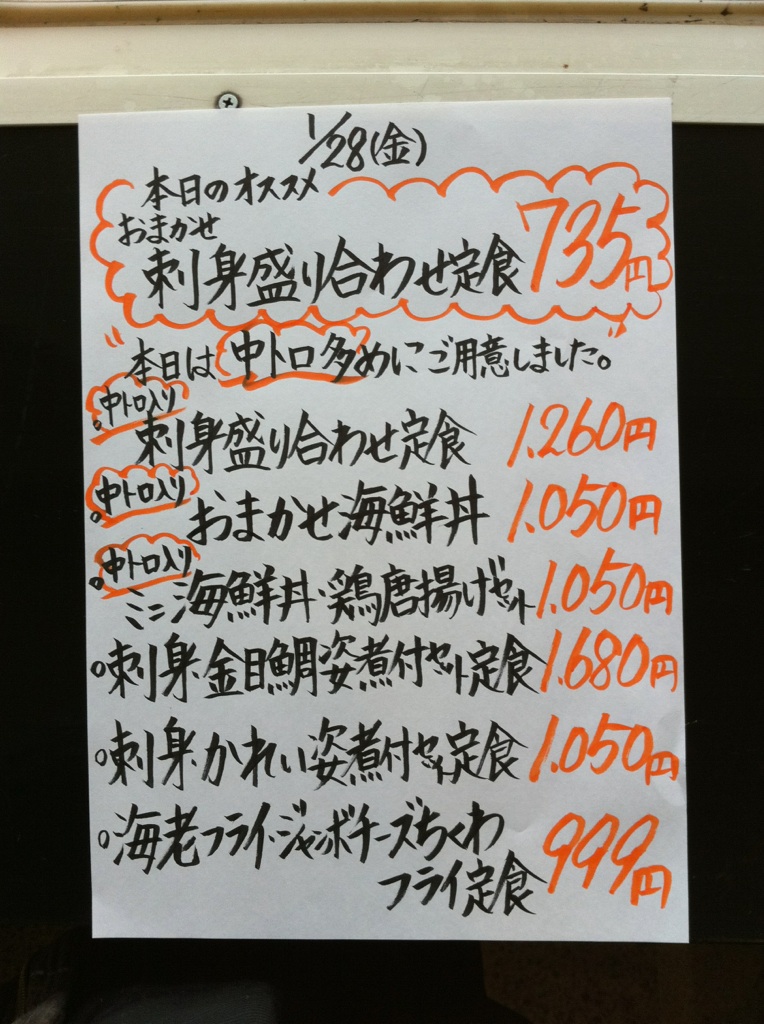 1/28(金)
本日のオススメ
おまかせ
刺身盛り合わせ定食 735円
"本日は中トロ多めにご用意しました。"
中トロ入り
。刺身盛り合わせ定食 1.260円
中トロ入り
。おまかせ海鮮丼 1.050円
中トロ入り
。ミニ海鮮丼・鶏唐揚げセット 1.050円
。刺身・金目鯛姿煮付セット定食 1.680円
。刺身・かれい姿煮付セット定食 1.050円
。海老フライ・ジャンボチーズちくわ
フライ定食 999円